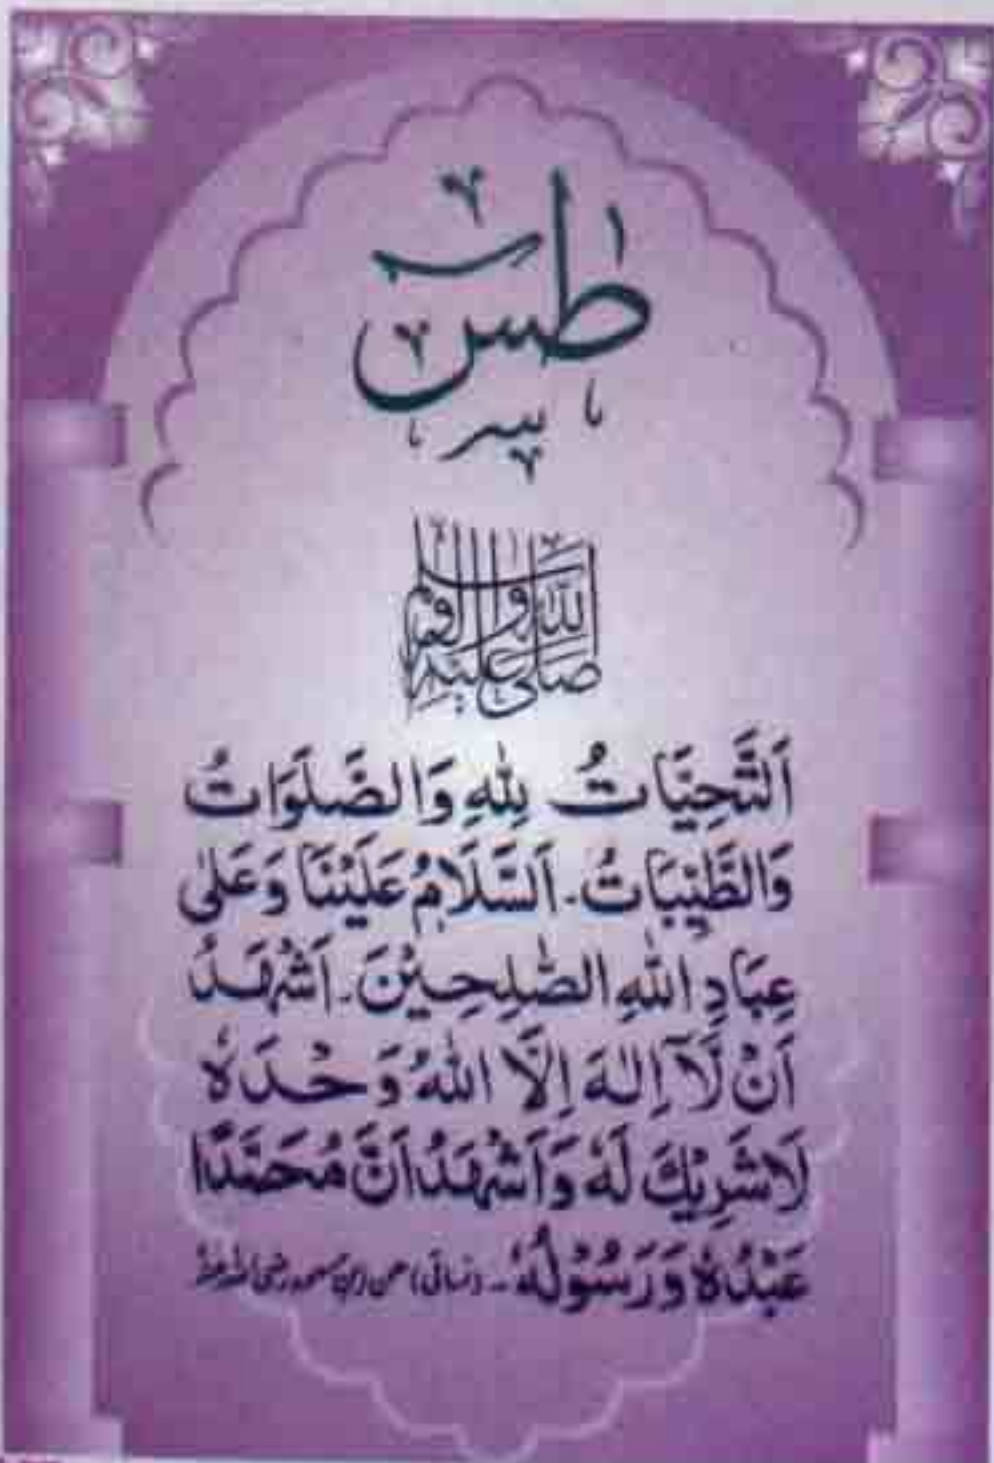 طٰسٓ
صلى الله عليه وآله وسلم
اَلتَّحِيَّاتُ لِلّٰهِ وَالصَّلَوَاتُ
وَالطَّيِّبَاتُ۔ اَلسَّلَامُ عَلَيْنَا وَعَلٰى
عِبَادِ اللّٰهِ الصّٰلِحِيْنَ۔ اَشْهَدُ
اَنْ لَّآ اِلٰهَ اِلَّا اللّٰهُ وَحْدَهٗ
لَا شَرِيْكَ لَهٗ وَاَشْهَدُ اَنَّ مُحَمَّدًا
عَبْدُهٗ وَرَسُوْلُهٗ۔ (نسائی) عن ابن مسعود رضی اللہ عنہ